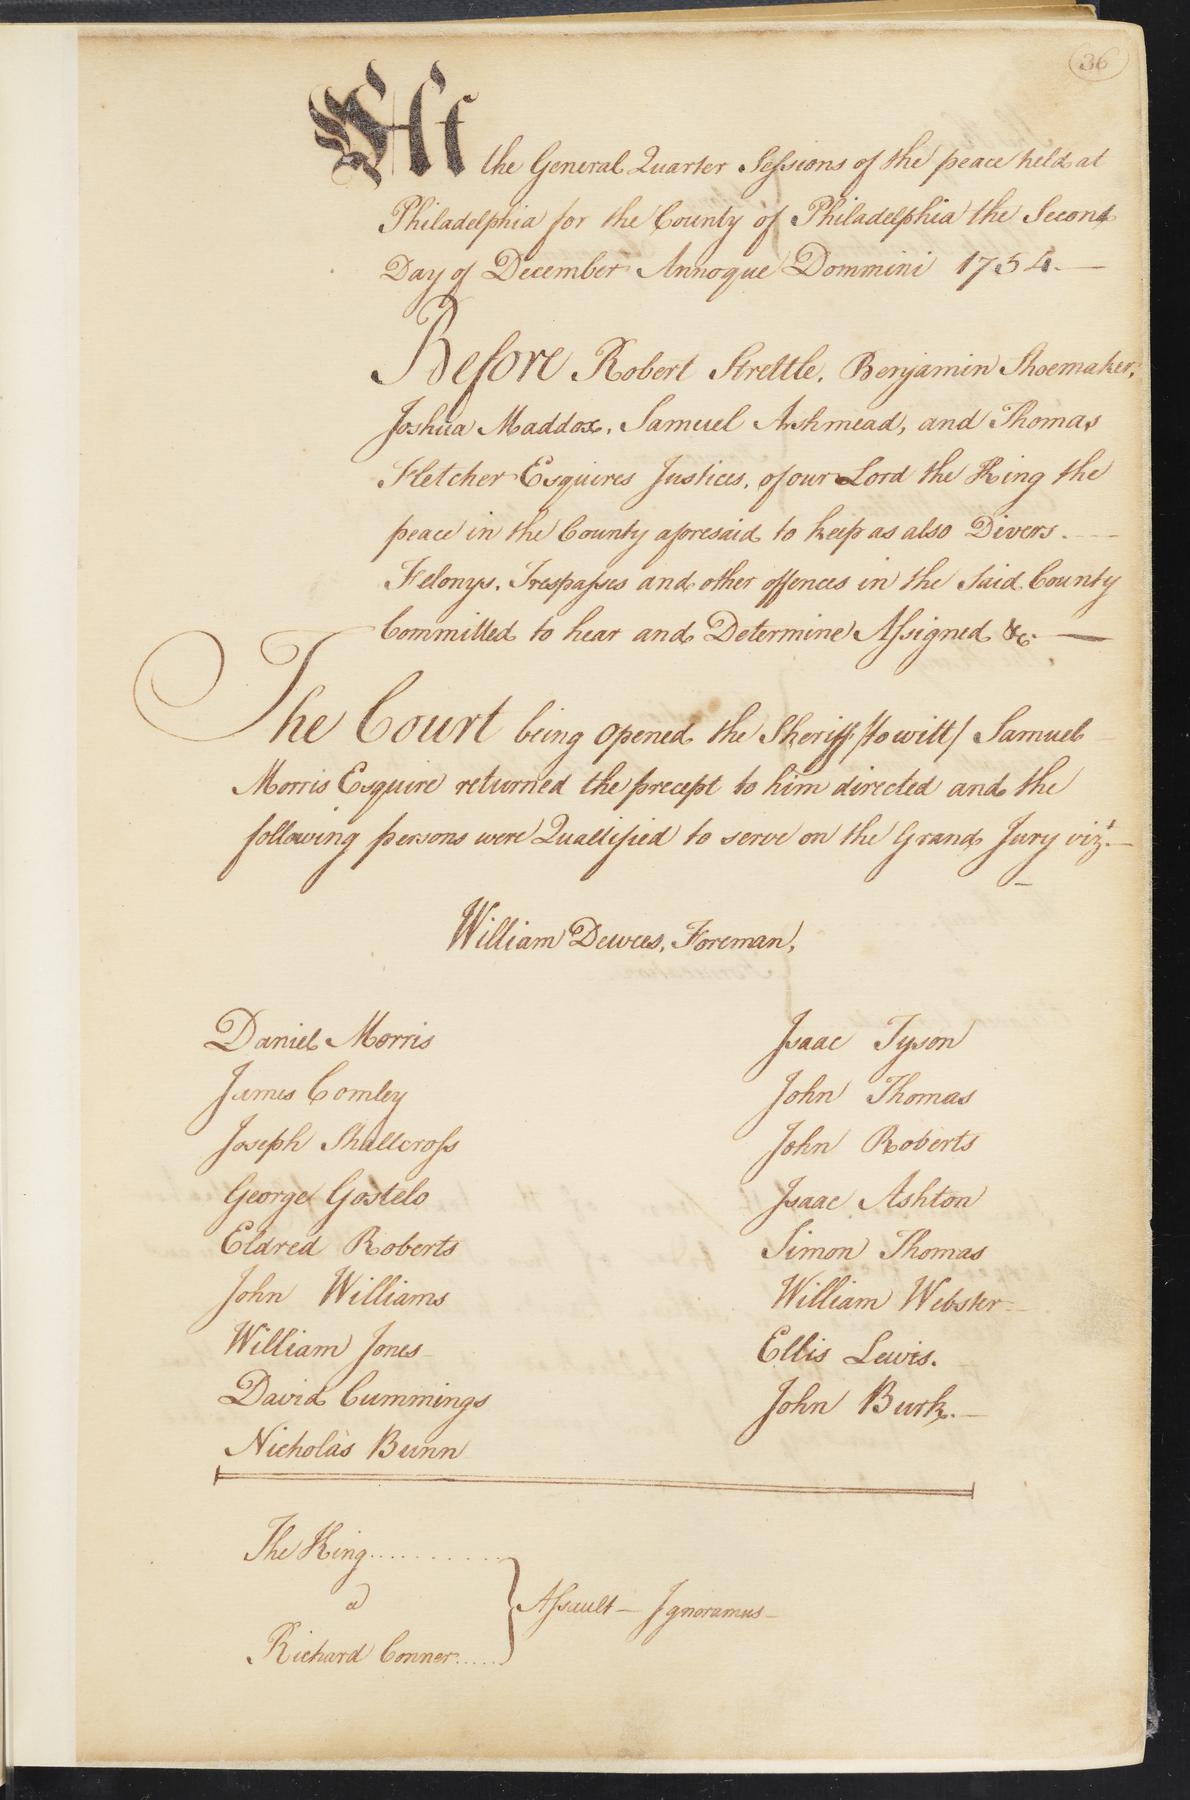 36
Att
the General Quarter Sessions of the peace held at
Philadelphia for the County of Philadelphia the Second
Day of December Annoque Dommini 1754.—
Before Robert Strettle, Benjamin Shoemaker,
Joshua Maddox, Samuel Ashmead, and Thomas
Fletcher Esquires Justices, of our Lord the King the
peace in the County aforesaid to keep as also Divers.----
Felonys, Trespasses and other offences in the said County
Committed to hear and Determine Assigned &c.—
The Court being opened the Sheriff /to witt/ Samuel
Morris Esquire returned the precept to him directed and the
following persons were Quallified to serve on the Grand Jury vizt.—
William Dewees, Foreman,
Daniel Morris
James Comley
Joseph Shallcross
George Gostelo
Eldred Roberts
John Williams
William Jones
David Cummings
Nicholas Bunn
Isaac Tyson
John Thomas
John Roberts
Isaac Ashton
Simon Thomas
William Webster
Ellis Lewis.
John Burk.—
The King..........
a
Richard Conner.....
} Assault — Ignoramus —